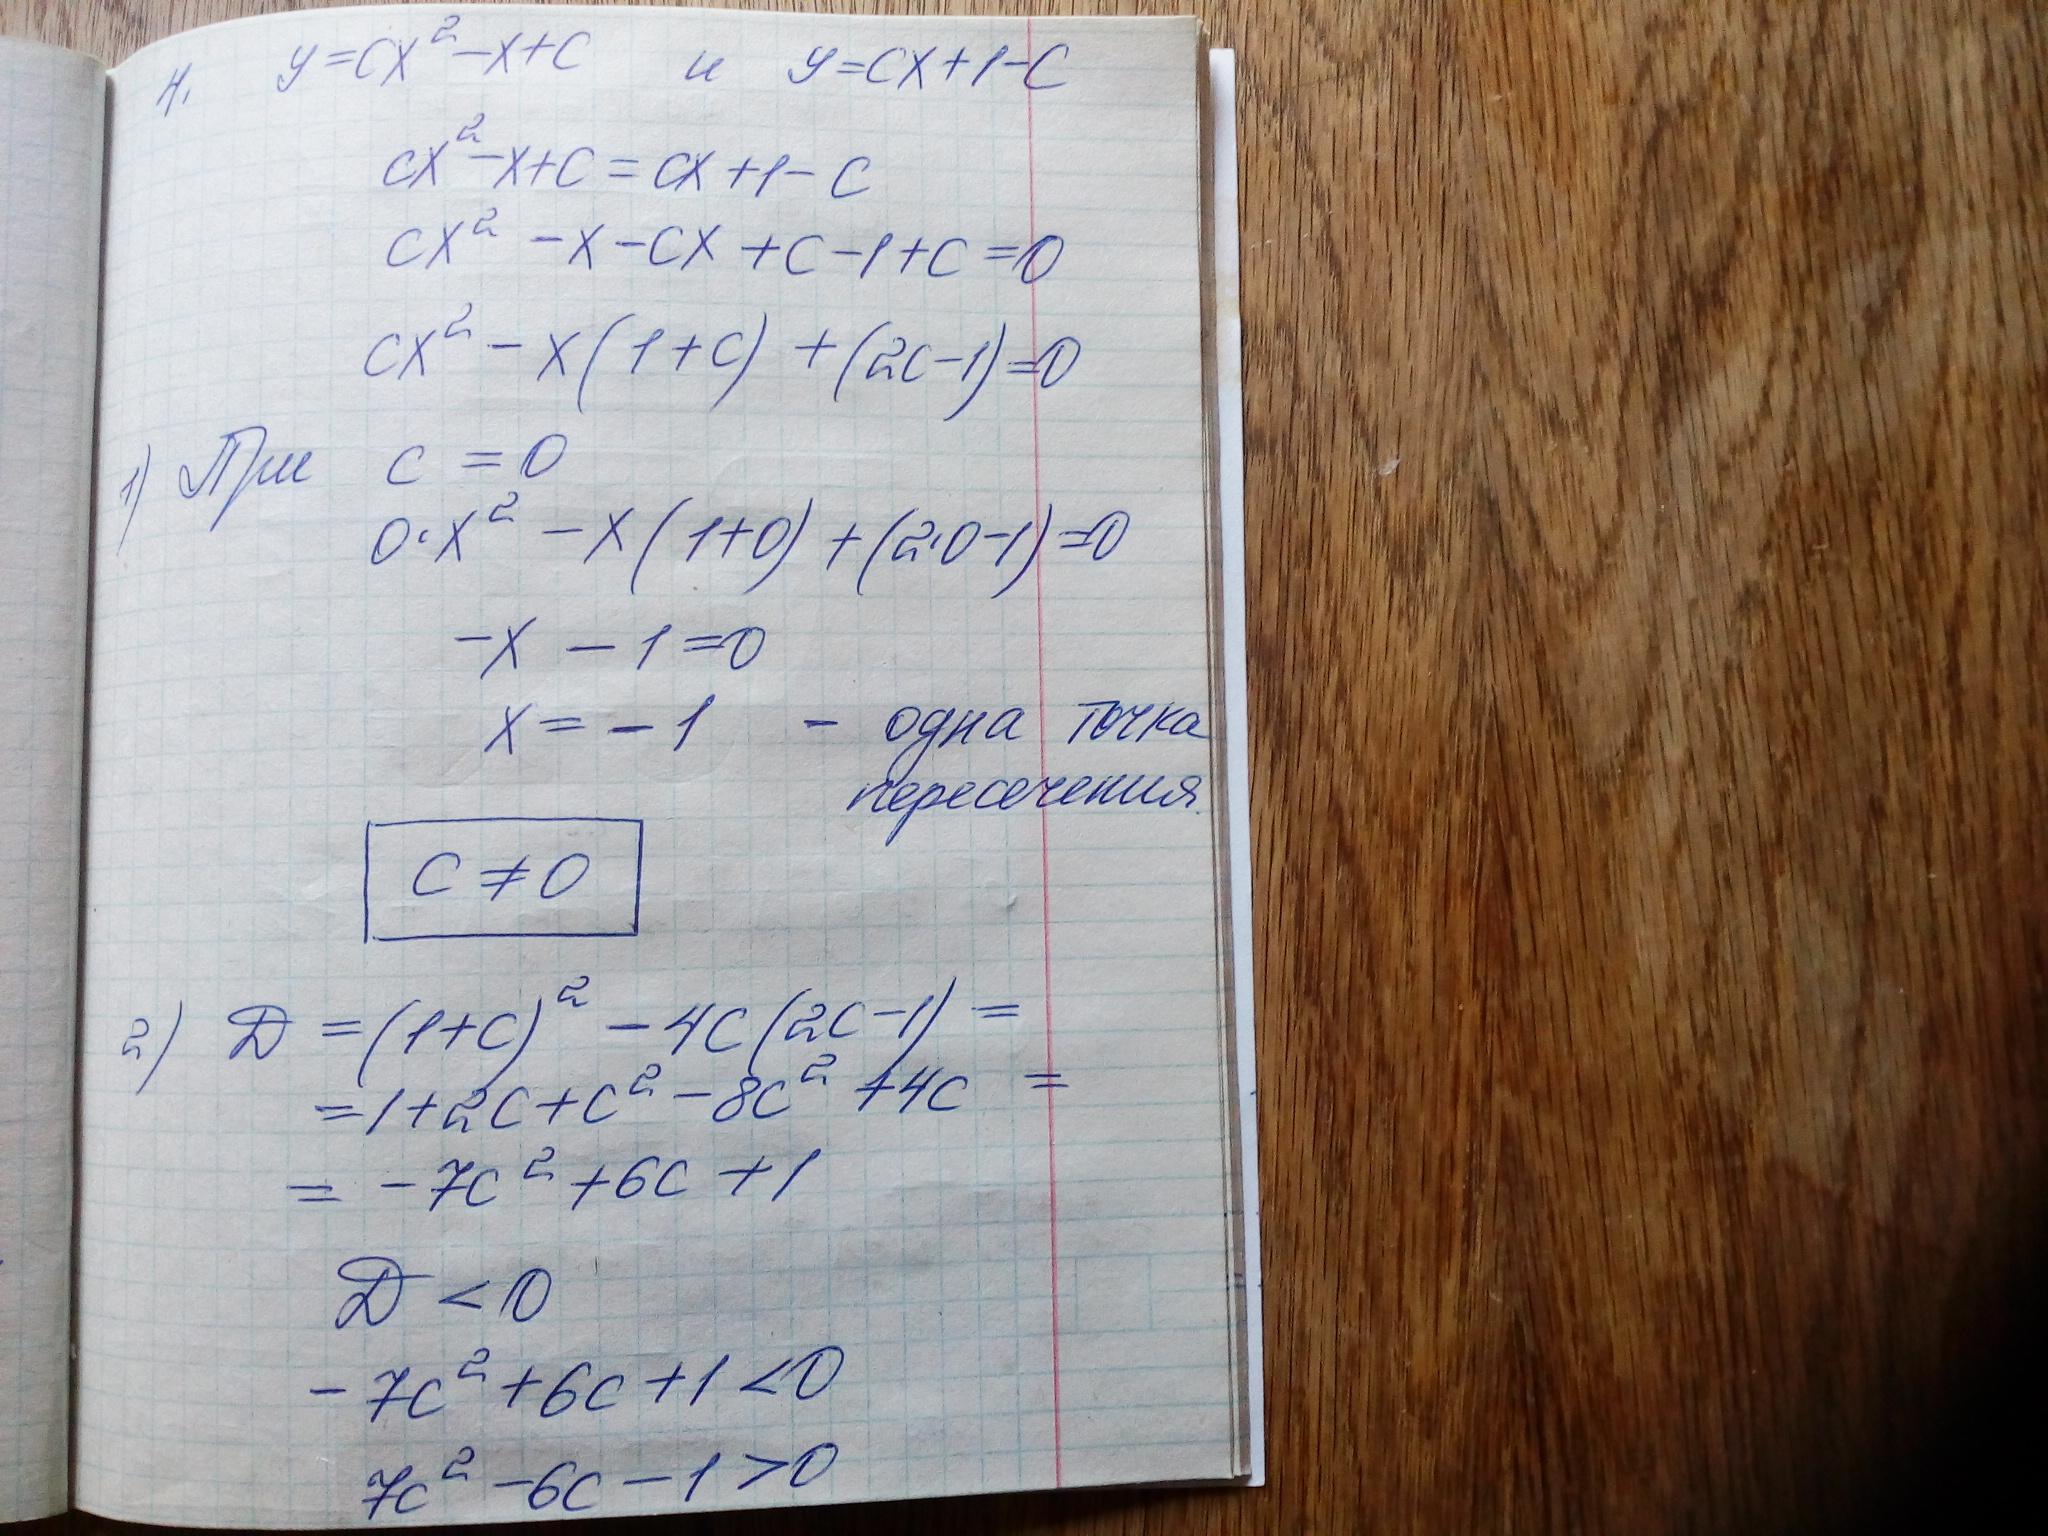 4. y=cx²-x+c и y=cx+1-c
cx²-x+c=cx+1-c
cx²-x-cx+c-1+c=0
cx²-x(1+c)+(2c-1)=0
1) При c=0
0·x²-x(1+0)+(2·0-1)=0
-x-1=0
x=-1 - одна точка
пересечения.
c≠0
2) D=(1+c)²-4c(2c-1)=
=1+2c+c²-8c²+4c=
=-7c²+6c+1
D<0
-7c²+6c+1<0
7c²-6c-1>0